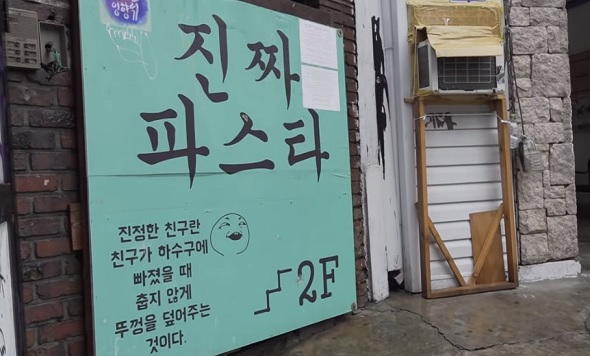 진짜
파스타
진정한 친구란
친구가 하수구에
빠졌을 때
춥지 않게
뚜껑을 덮어주는
것이다.
2F